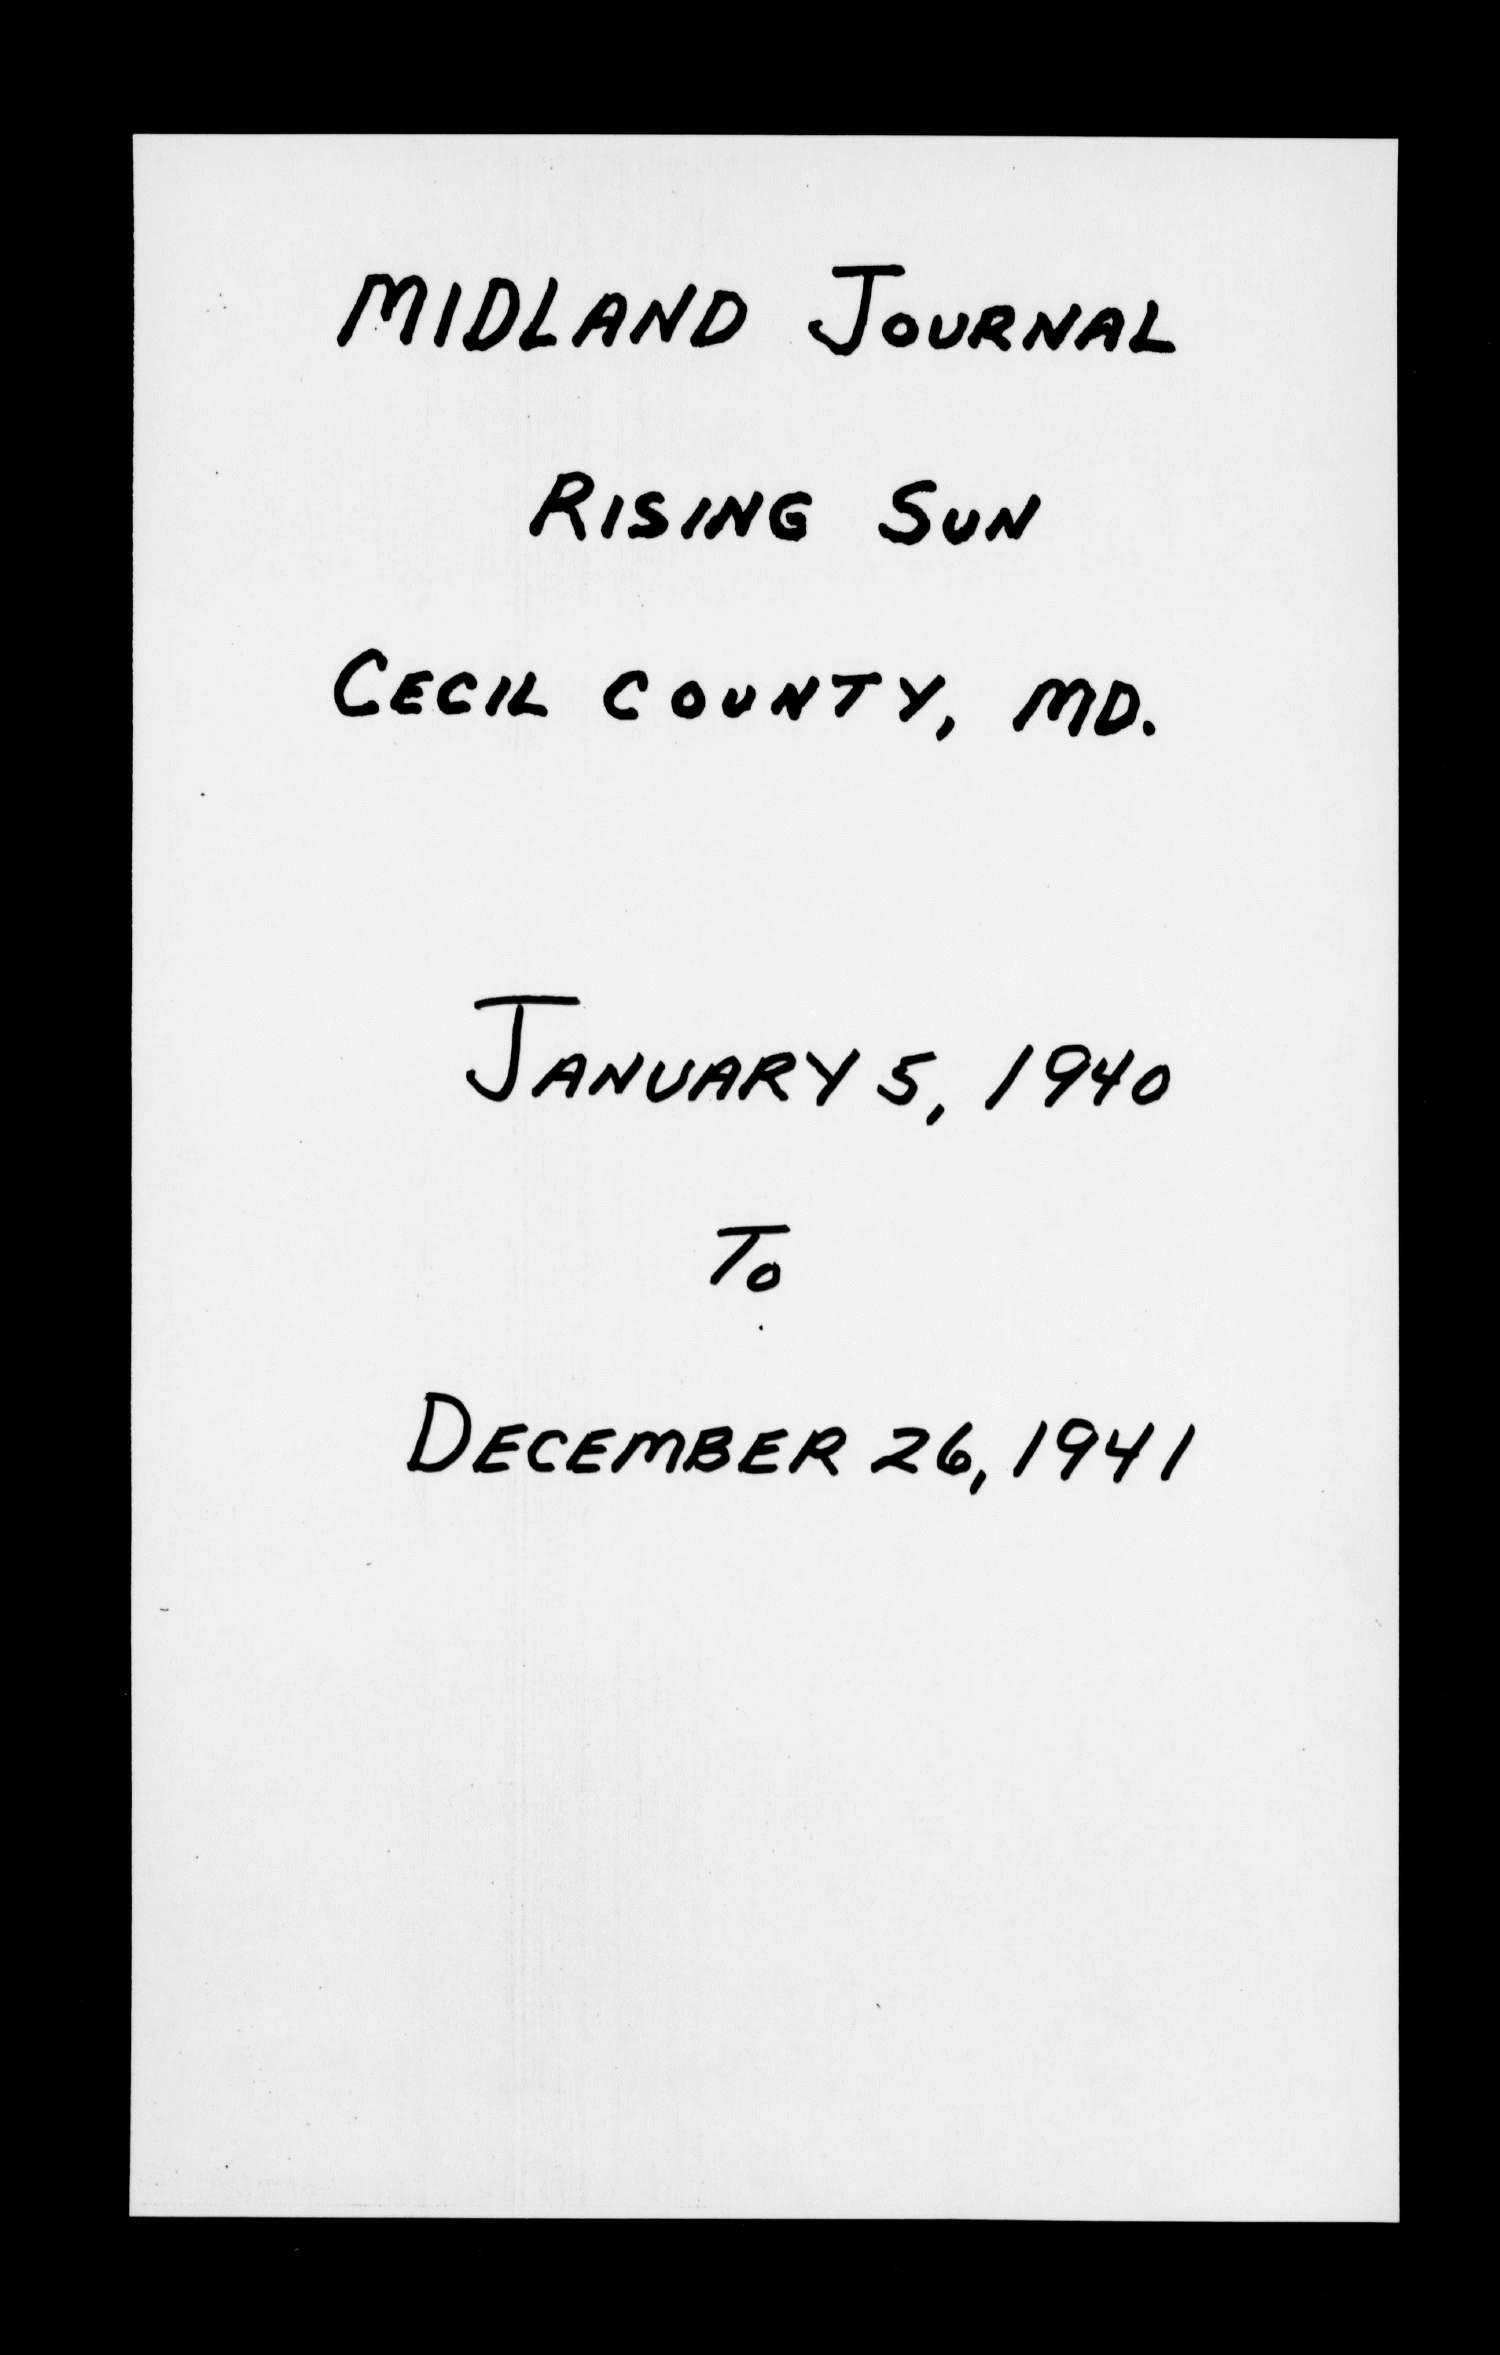 MIDLAND JOURNAL
RISING SUN
CECIL COUNTY, MD.
JANUARY 5, 1940
TO
DECEMBER 26, 1941